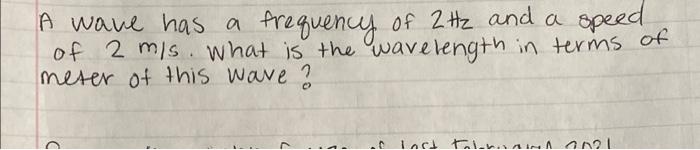 A wave has a frequency of 2 Hz and a speed
of 2 m/s. What is the wavelength in terms of
meter of this wave?
last 2021